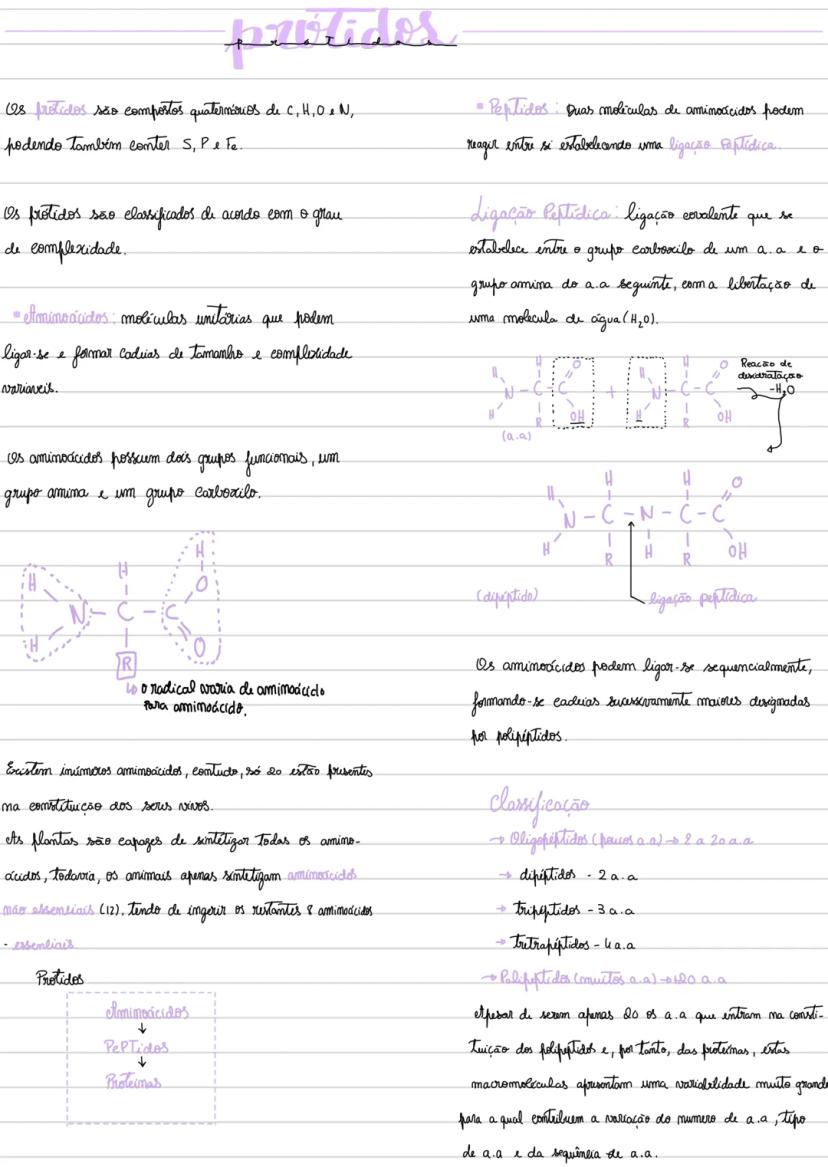 prótidos
protidos
Os prótidos são compostos quaternários de C, H, O e N,
podendo também conter S, P e Fe.
Os prótidos são classificados de acordo com o grau
de complexidade.
Aminoácidos: moléculas unitárias que podem
ligar-se e formar cadeias de tamanho e complexidade
variaveis.
Os aminoácidos possuem dois grupos funcionais, um
grupo amina e um grupo carboxilo.
H H H
N - C - C O
H R O
↳ o radical varia de aminoácido
para aminoácido.
Existem inúmeros aminoácidos, contudo, só 20 estão presentes
na constituição dos seres vivos.
As plantas são capazes de sintetizar todas os amino-
ácidos, todavia, os animais apenas sintetizam aminoácidos
não essenciais (12), tendo de ingerir os restantes 8 aminoácidos
- essenciais
Protidos
Aminoácidos
↓
PePTidos
↓
Proteínas
Peptidos: Duas moléculas de aminoácidos podem
reagir entre si estabelecendo uma ligação Peptídica.
Ligação Peptídica: ligação covalente que se
estabelece entre o grupo carboxilo de um a.a e o
grupo amina do a.a seguinte, com a libertação de
uma molecula de água (H₂O).
H H O + H H O
N - C - C N - C - C
H R OH H R OH
(a.a)
Reacão de
desidratação
-H₂O
H H H O
N - C - N - C - C
H R H R OH
(dipéptido)
ligação peptídica
Os aminoácidos podem ligar-se sequencialmente,
formando-se cadeias sucessivamente maiores designadas
por polipéptidos.
Classificação
→ Oligopéptidos (poucos a.a) → 2 a 20 a.a
→ dipéptidos - 2 a.a
→ tripéptidos - 3 a.a
→ tretrapéptidos - 4 a.a
→ Polipeptidos (muitos a.a) → +20 a.a
Apesar de serem apenas 20 os a.a que entram na consti-
tuição dos polipeptidos e, por tanto, das proteínas, estas
macromoléculas apresentam uma variabilidade muito grande
para a qual contribuem a variação do numero de a.a, tipo
de a.a e da sequência de a.a.